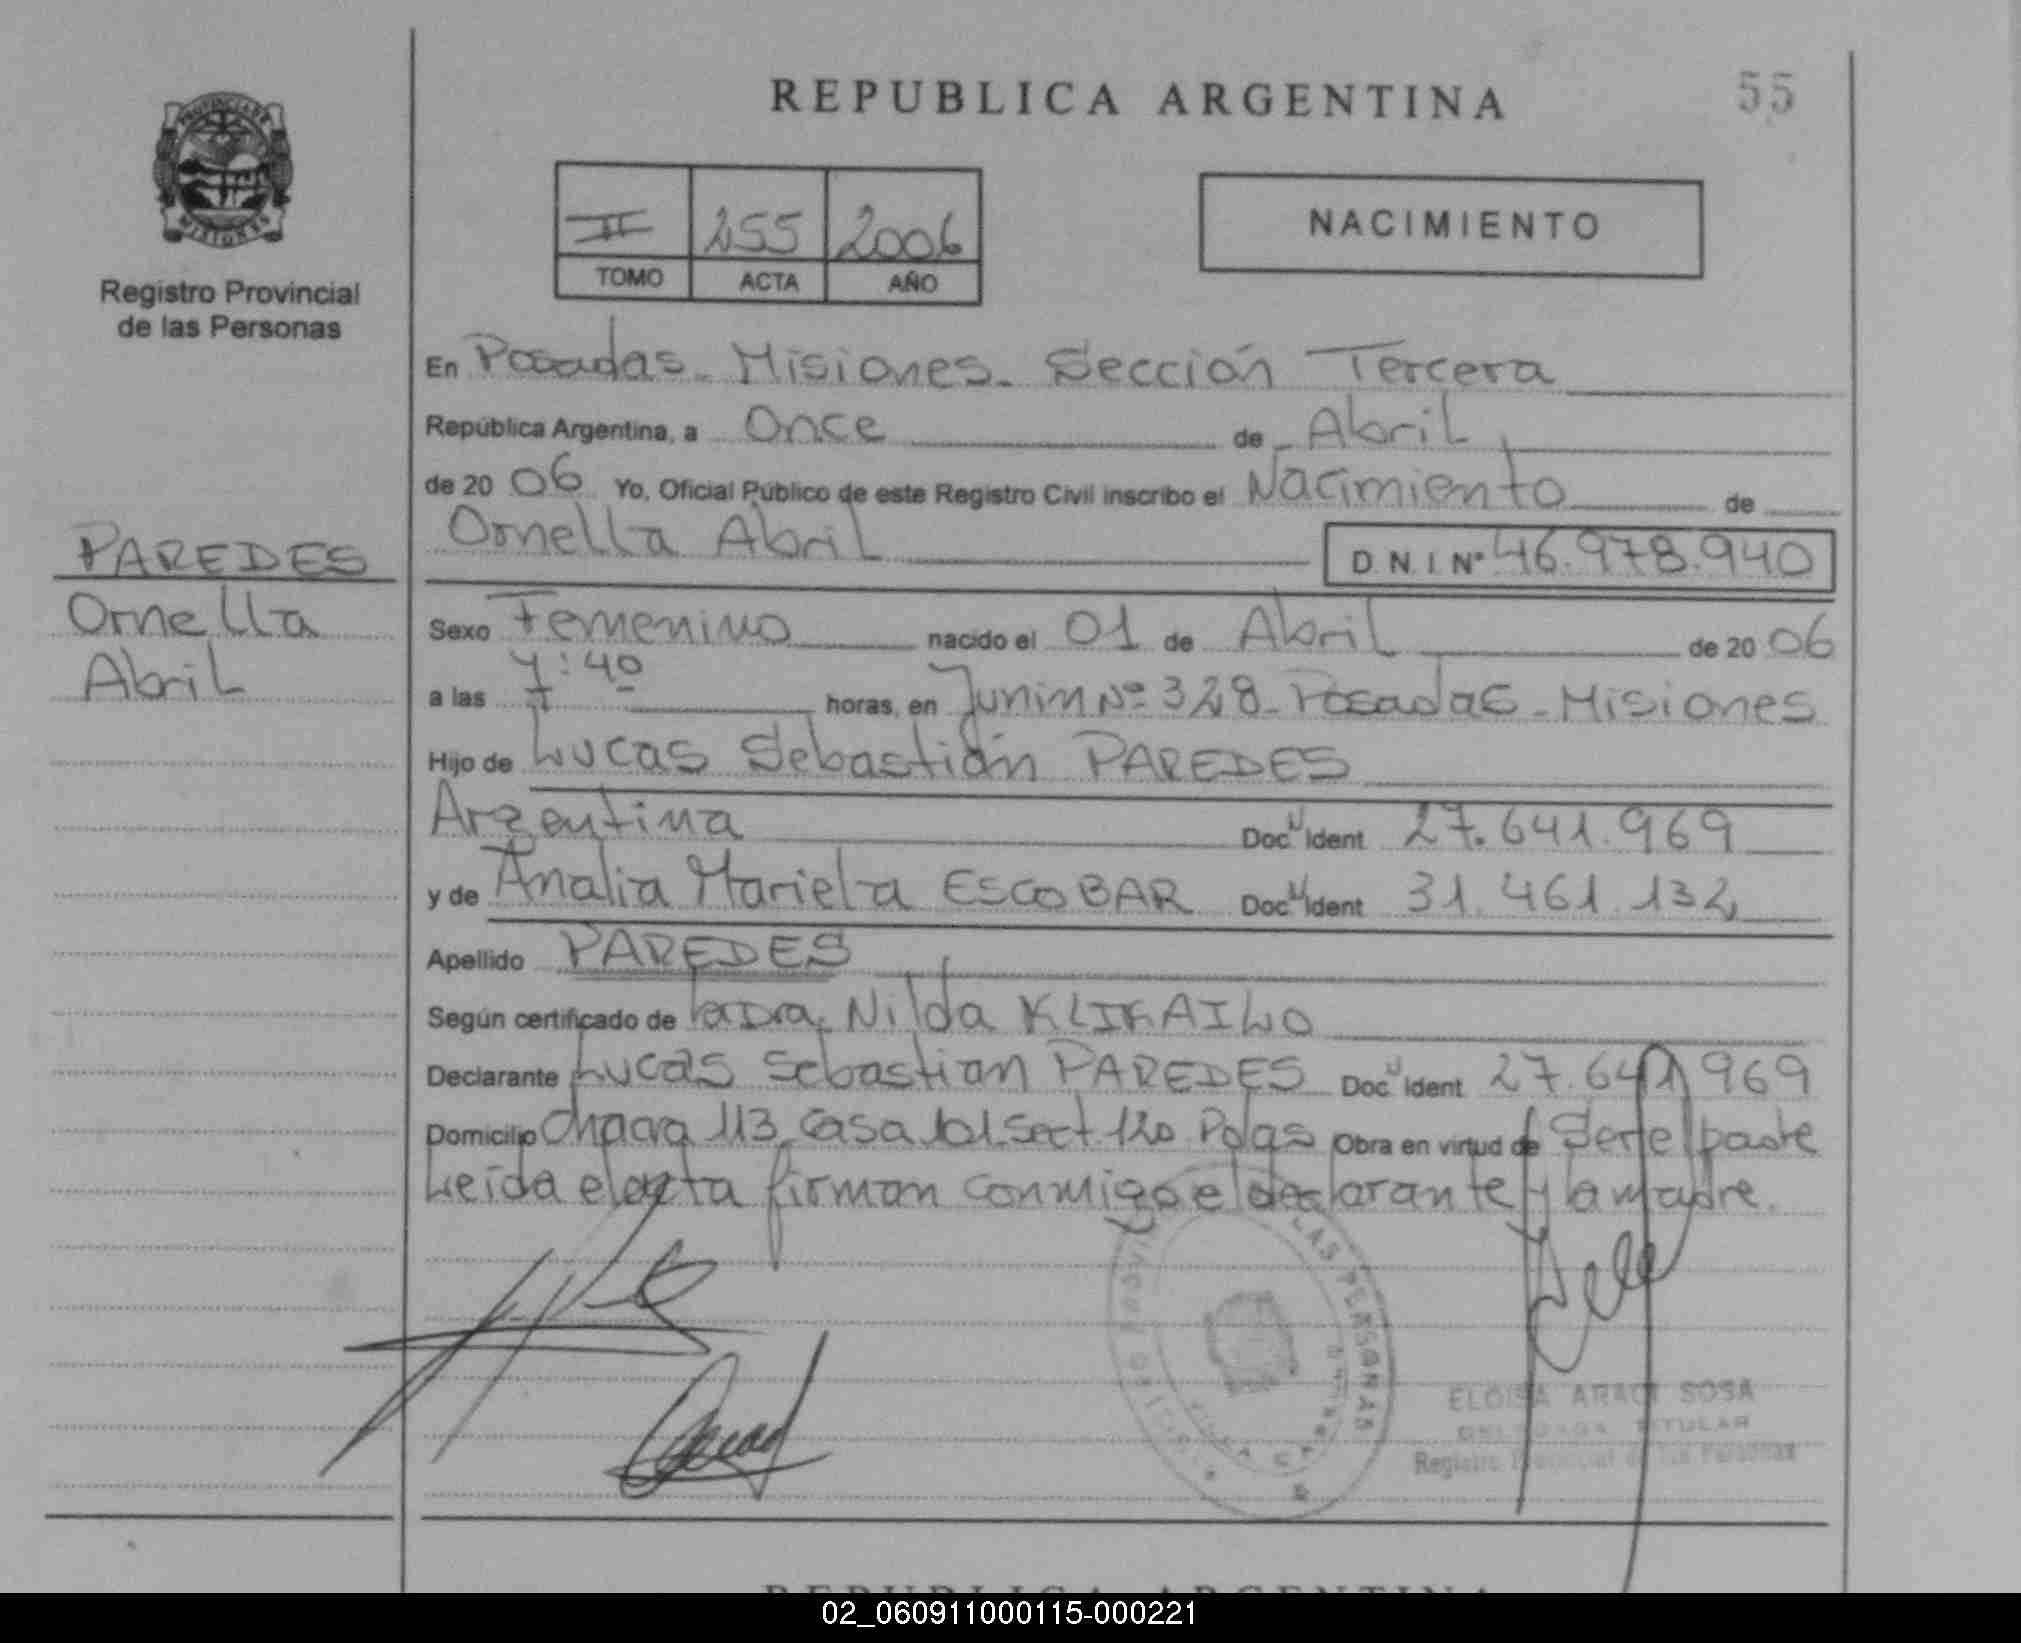 REPUBLICA ARGENTINA
55
PROVINCIA DE
MISIONES
Registro Provincial
de las Personas
II 255 2006
TOMO ACTA AÑO
NACIMIENTO
En Posadas - Misiones - Sección Tercera
República Argentina, a Once de Abril
de 20 06 Yo, Oficial Público de este Registro Civil inscribo el Nacimiento de
Ornella Abril D.N.I. Nº 46.978.940
PAREDES
Ornella
Abril
Sexo Femenino nacido el 01 de Abril de 20 06
a las 7:40 horas, en Junin Nº 328 - Posadas - Misiones
Hijo de Lucas Sebastián PAREDES
Argentina Doc Ident 27.641.969
y de Analia Mariela ESCOBAR Doc Ident 31.461.132
Apellido PAREDES
Según certificado de la Dra. Nilda
Declarante Lucas Sebastian PAREDES Doc Ident 27.641.969
Domicilio Chacra 113 Casa 101 Sect. 120 Pdas Obra en virtud de Ser el padre
Leída el acta firman conmigo el declarante y la madre.
LAS PERSONAS
ELOISA ARACI SOSA
DELEGADA TITULAR
Registro Provincial de las Personas
REPUBLICA ARGENTINA
02_060911000115-000221